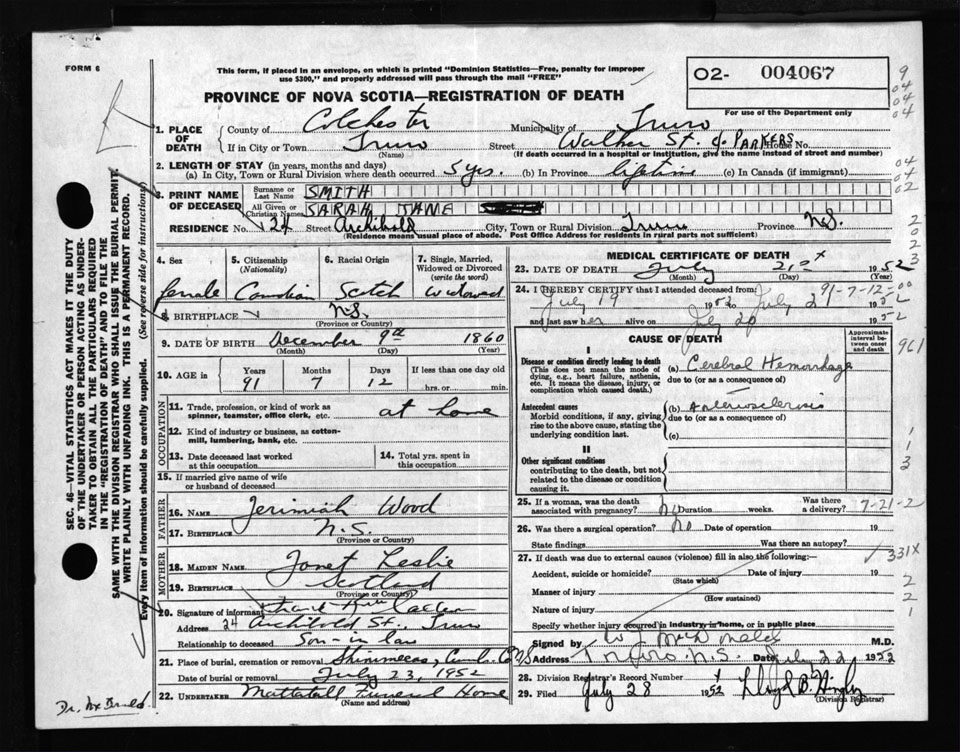 FORM 6
This form, if placed in an envelope, on which is printed "Dominion Statistics—Free, penalty for improper
use $300," and properly addressed will pass through the mail "FREE"
O2- 004067
PROVINCE OF NOVA SCOTIA—REGISTRATION OF DEATH
For use of the Department only
1. PLACE OF DEATH
County of Colchester Municipality of Truro
If in City or Town Truro Street Walker St. PARKERS House No.
(Name) (If death occurred in a hospital or institution, give the name instead of street and number)
2. LENGTH OF STAY (in years, months and days)
(a) In City, Town or Rural Division where death occurred 5 yrs. (b) In Province lifetime (c) In Canada (if immigrant)
3. PRINT NAME OF DECEASED
Surname or Last Name SMITH
All Given or Christian Names SARAH JANE
RESIDENCE No. 24 Street Archibald City, Town or Rural Division Truro Province N.S.
(Residence means usual place of abode. Post Office Address for residents in rural parts not sufficient)
4. Sex 5. Citizenship (Nationality) 6. Racial Origin 7. Single, Married, Widowed or Divorced (write the word)
female Canadian Scotch widowed
8. BIRTHPLACE N.S.
(Province or Country)
9. DATE OF BIRTH December 9th 1860
(Month) (Day) (Year)
10. AGE in Years Months Days If less than one day old
91 7 12 hrs. or min.
OCCUPATION
11. Trade, profession, or kind of work as spinner, teamster, office clerk, etc. at home
12. Kind of industry or business, as cotton-mill, lumbering, bank, etc.
13. Date deceased last worked at this occupation 14. Total yrs. spent in this occupation
15. If married give name of wife or husband of deceased
FATHER
16. NAME Jerimiah Wood
17. BIRTHPLACE N.S.
(Province or Country)
MOTHER
18. MAIDEN NAME Janet Leslie
19. BIRTHPLACE Scotland
(Province or Country)
20. Signature of informant
Address 24 Archibald St., Truro
Relationship to deceased Son-in law
21. Place of burial, cremation or removal Shinimecas, Cumb. Co. N.S
Date of burial or removal July 23, 1952
22. UNDERTAKER Mattatall Funeral Home
(Name and address)
MEDICAL CERTIFICATE OF DEATH
23. DATE OF DEATH July 1952
(Month) (Day) (Year)
24. I HEREBY CERTIFY that I attended deceased from 91-7-12-00
July 19 1952 to July 21 1952
and last saw her alive on July 20 1952
CAUSE OF DEATH
Approximate interval between onset and death
I
Disease or condition directly leading to death
(This does not mean the mode of dying, e.g., heart failure, asthenia, etc. It means the disease, injury, or complication which caused death.)
(a) Cerebral Hemorrhage
due to (or as a consequence of)
Antecedent causes
Morbid conditions, if any, giving rise to the above cause, stating the underlying condition last.
(b) Arteriosclerosis
due to (or as a consequence of)
(c)
II
Other significant conditions
contributing to the death, but not related to the disease or condition causing it.
25. If a woman, was the death associated with pregnancy? No Duration weeks. Was there a delivery? 7-21-2
26. Was there a surgical operation? No Date of operation 19
State findings Was there an autopsy?
27. If death was due to external causes (violence) fill in also the following: 331X
Accident, suicide or homicide? Date of injury 19
(State which)
Manner of injury
(How sustained)
Nature of injury
Specify whether injury occurred in industry, in home, or in public place
Signed by M.D.
Address Truro N.S. Date July 22 1952
28. Division Registrar's Record Number
29. Filed July 28 1952
(Division Registrar)
SEC. 46—VITAL STATISTICS ACT MAKES IT THE DUTY
OF THE UNDERTAKER OR PERSON ACTING AS UNDER-
TAKER TO OBTAIN ALL THE PARTICULARS REQUIRED
IN THE "REGISTRATION OF DEATH" AND TO FILE THE
SAME WITH THE DIVISION REGISTRAR WHO SHALL ISSUE THE BURIAL PERMIT.
WRITE PLAINLY WITH UNFADING INK. THIS IS A PERMANENT RECORD.
Every item of information should be carefully supplied. (See reverse side for instructions)
9
04
04
04
04
04
02
2
0
2
3
961
1
1
3
2
2
1